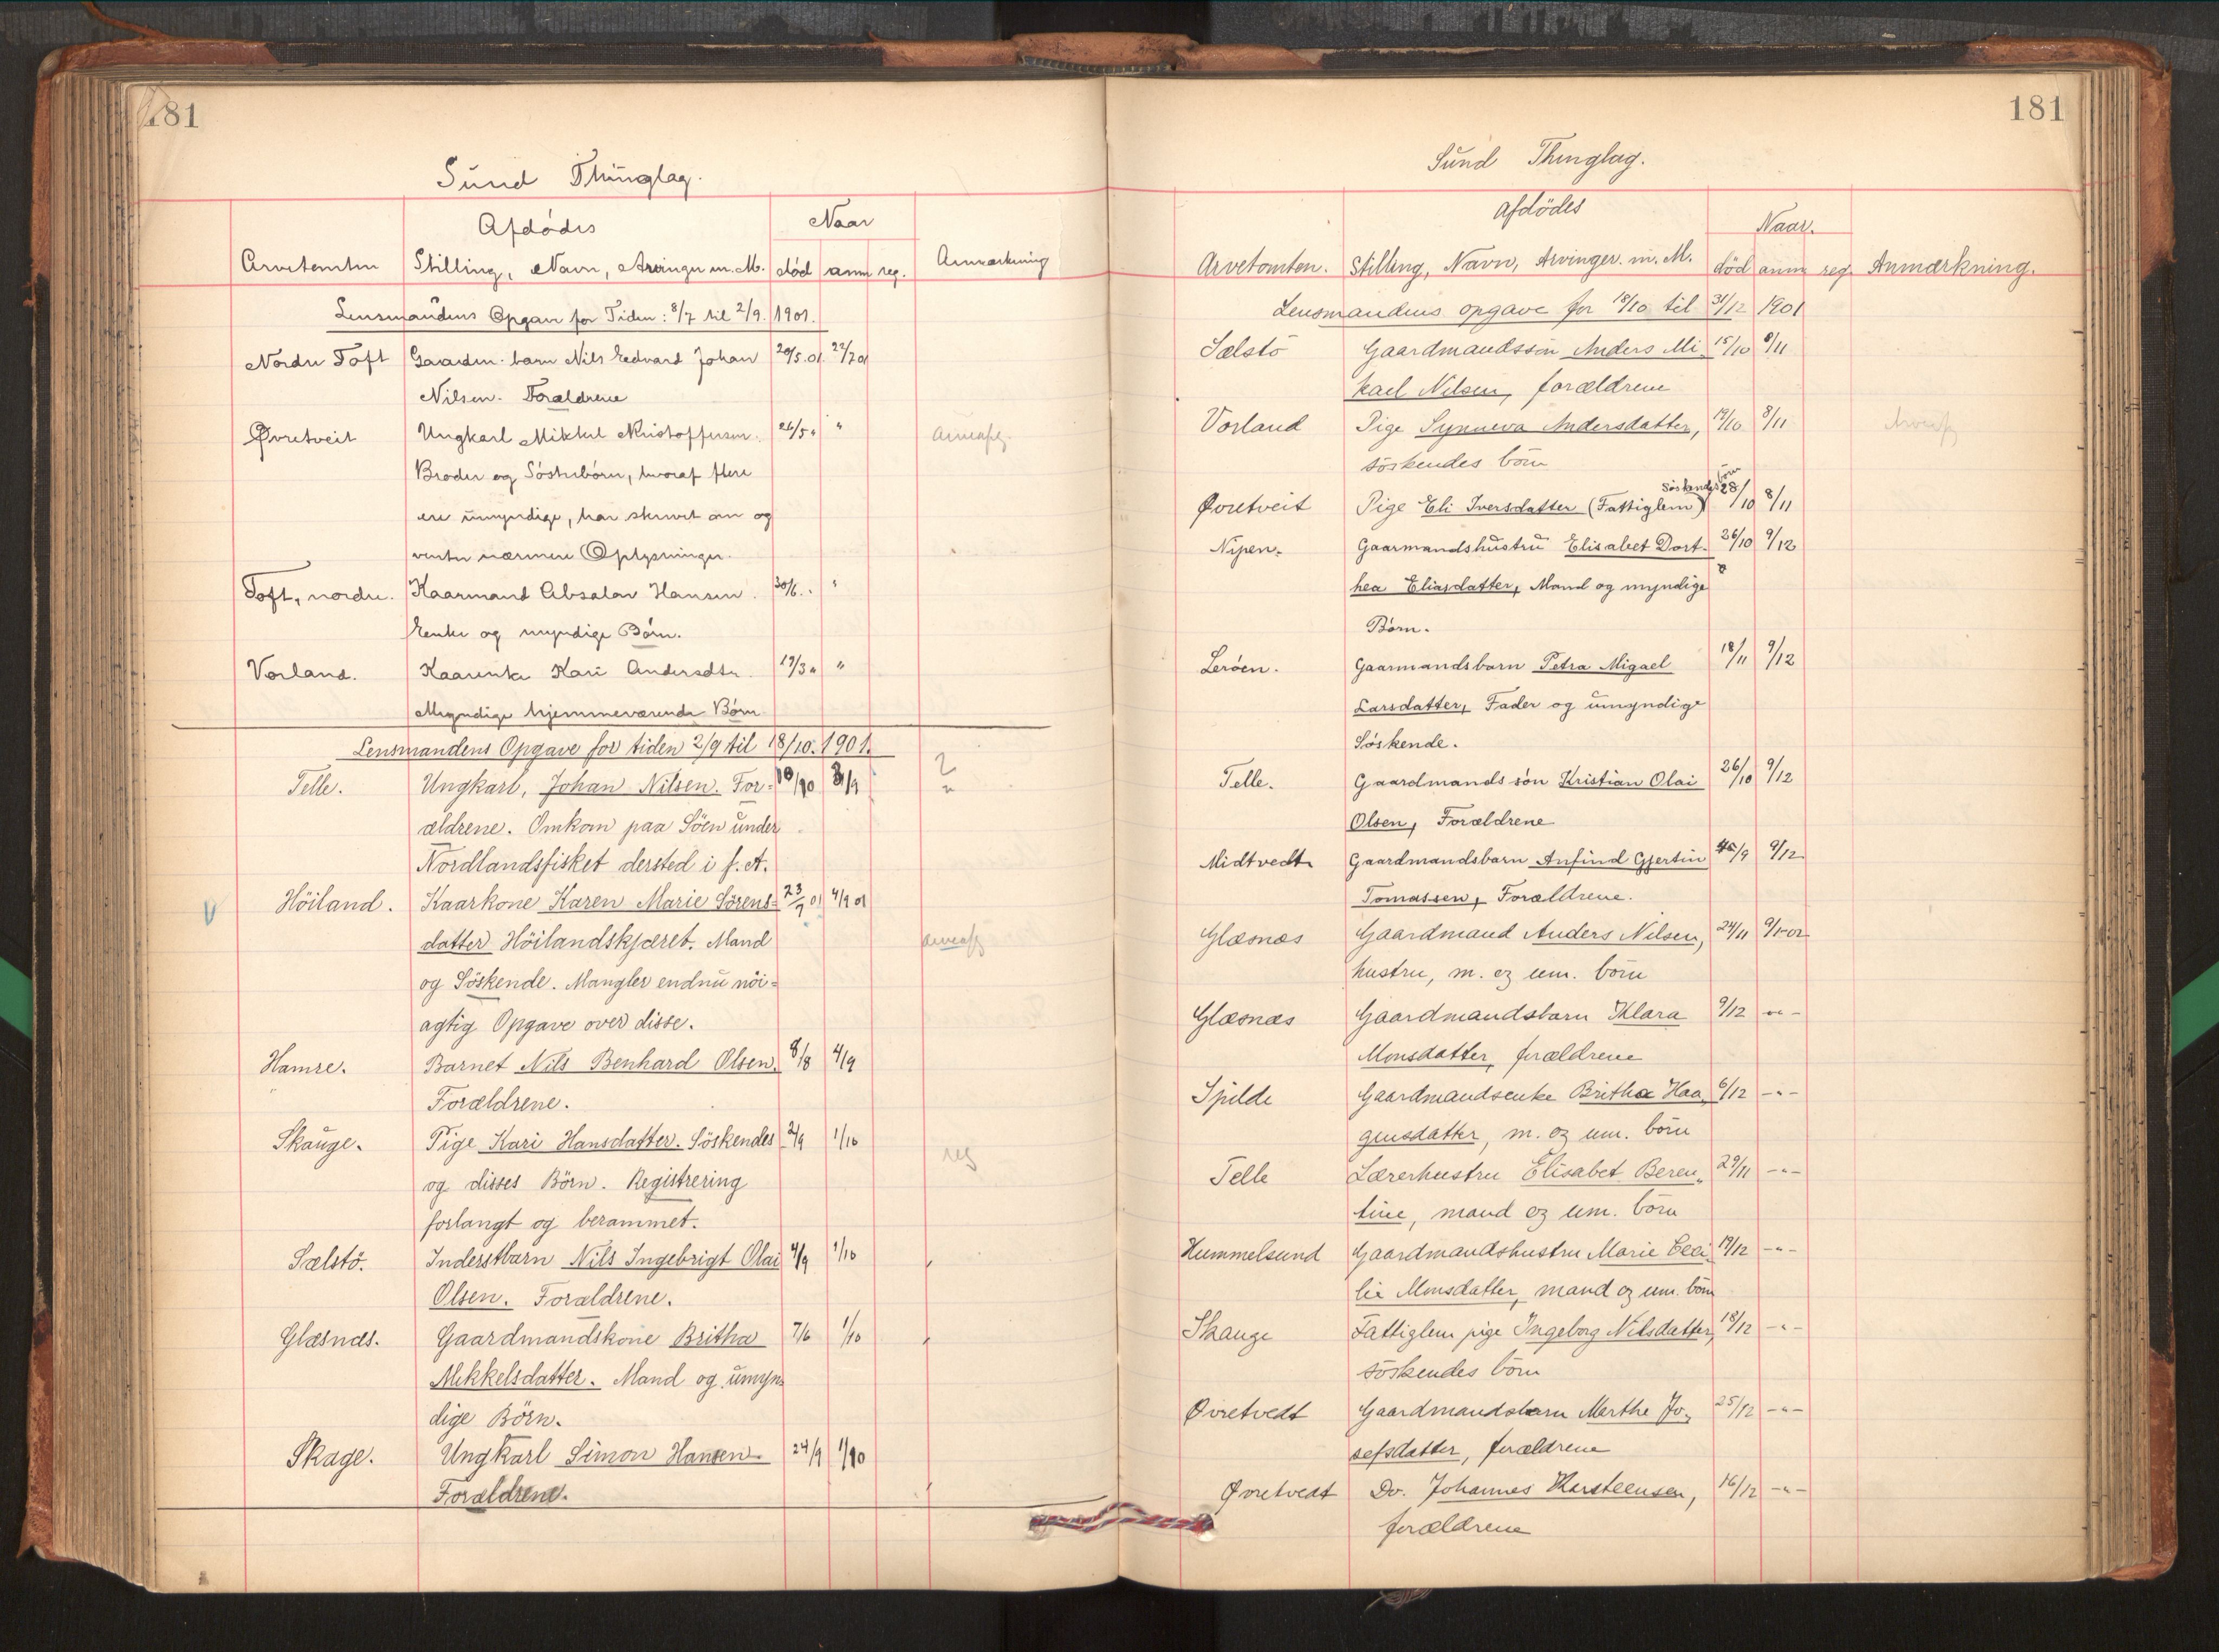 181
Sund Thinglag.
Afdødes Naar
Arvetomten Stilling, Navn, Arvinger m. M. død anm reg. Anmærkning
Lensmandens Opgave for Tiden: 8/7 til 2/9. 1901.
Nordre Toft Gaardm. barn Nils Edvard Johan 20/5.01. 22/7 01
Nilsen. Forældrene
Øvretveit Ungkarl Mikkel Kristoffersen. 26/5 " "
Broder og Søsterbørn, hvoraf flere
ere umyndige, har skrevet om og
venter nærmere Oplysninger.
Toft, nordre. Kaarmand Absalon Hansen. 30/6. " "
Enke og myndige Børn.
Vorland. Kaarenke Kari Andersdtr. 19/3 " "
Myndige hjemmeværende Børn
Lensmandens Opgave for tiden 2/9 til 18/10. 1901.
Telle. Ungkarl, Johan Nilsen. For=
ældrene. Omkom paa Söen under
Nordlandsfisket dersted i f. A.
Höiland. Kaarkone Karen Marie Sörens= 23/7 01 4/9 01
datter Höilandskjæret. Mand
og Söskende. Mangler endnu nöi=
agtig Opgave over disse.
Hamre. Barnet Nils Benhard Olsen. 8/8 4/9
Forældrene.
Skauge. Pige Kari Hansdatter. Söskendes 2/9 1/10 reg
og disses Börn. Registrering
forlangt og berammet.
Sælstö. Inderstbarn Nils Ingebrigt Olai 4/9 1/10
Olsen. Forældrene.
Glæsnæs. Gaardmandskone Britha 7/6 1/10
Mikkelsdatter. Mand og umyn=
dige Börn.
Skage. Ungkarl Simon Hansen. 24/9 1/10
Forældrene.
181
Sund Thinglag.
Afdödes Naar.
Arvetomten. Stilling, Navn, Arvinger. m. M. död anm reg. Anmærkning.
Lensmandens opgave for 18/10 til 31/12 1901
Sælstö Gaardmandssön Anders Mi- 15/10 6/11
kael Nilsen, forældrene
Vorland Pige Synneva Andersdatter, 19/10 8/11
söskendes börn
Øvretveit Pige Eli Iversdatter (Fattiglem) söskendes börn 28/10 8/11
Nipen. Gaarmandshustru Elisabet Dort- 26/10 9/12
hea Eliasdatter, Mand og myndige
Börn.
Leröen. Gaarmandsbarn Petra Migael 18/11 9/12
Larsdatter, Fader og umyndige
Söskende.
Telle. Gaardmands sön Kristian Olai 26/10 9/12
Olsen, Forældrene
Midtvedt Gaardmandsbarn Anfind Gjertin 9/12
Tomassen, Forældrene.
Glæsnæs Gaardmand Anders Nilsen, 24/11 9/1-02
hustru, m. og um. börn
Glæsnæs Gaardmandsbarn Klara 9/12 -"-
Monsdatter, forældrene
Spilde Gaardmandsenke Britha Haa- 6/12 -"-
gensdatter, m. og um. börn
Telle Lærerhustru Elisabet Beren- 29/11 -"-
tine, mand og um. börn
Hummelsund Gaardmandshustru Marie Ceci- 19/12 -"-
lie Monsdatter, mand og um. börn
Skauge Fattiglem pige Ingeborg Nilsdatter, 18/12 -"-
söskendes börn
Øvretvedt Gaardmandsbarn Marthe Jo- 25/12 -"-
sefsdatter, forældrene
Øvretvedt Do. Johannes Karsteensen, 16/12 -"-
forældrene